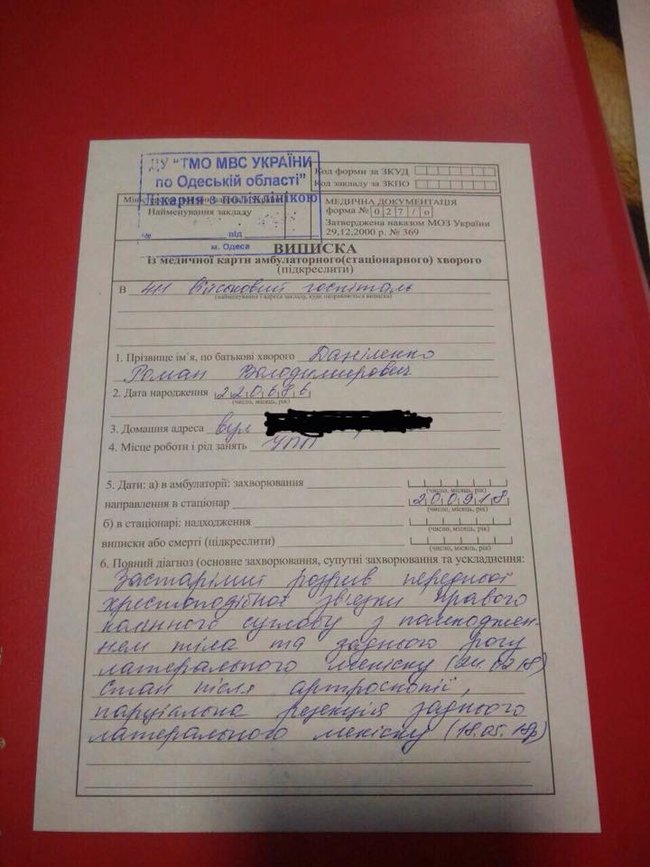 ДУ "ТМО МВС УКРАЇНИ
по Одеській області"
Лікарня з поліклінікою
від
№
м. Одеса
Код форми за ЗКУД
Код закладу за ЗКПО
Найменування закладу
МЕДИЧНА ДОКУМЕНТАЦІЯ
форма № 027/о
Затверджена наказом МОЗ України
29.12.2000 р. № 369
ВИПИСКА
із медичної карти амбулаторного(стаціонарного) хворого
(підкреслити)
В 411 Військовий госпіталь
(найменування і адреса закладу, куди направляється виписка)
1. Прізвище ім'я, по батькові хворого Даніленко
Роман Володимирович
2. Дата народження 220686
(число, місяць, рік)
3. Домашня адреса вул
4. Місце роботи і рід занять УПП
5. Дати: а) в амбулаторії: захворювання
(число, місяць, рік)
направлення в стаціонар 200918
(число, місяць, рік)
б) в стаціонарі: надходження
(число, місяць, рік)
виписки або смерті (підкреслити)
(число, місяць, рік)
6. Повний діагноз (основне захворювання, супутні захворювання та ускладнення:
Застарілий розрив передньої
хрестоподібної зв'язки правого
колінного суглобу з пошкоджен-
нем тіла та заднього рогу
латерального меніску (24.02.18)
Стан після артроскопії,
парціальна резекція заднього
латерального меніску (18.05.18р)